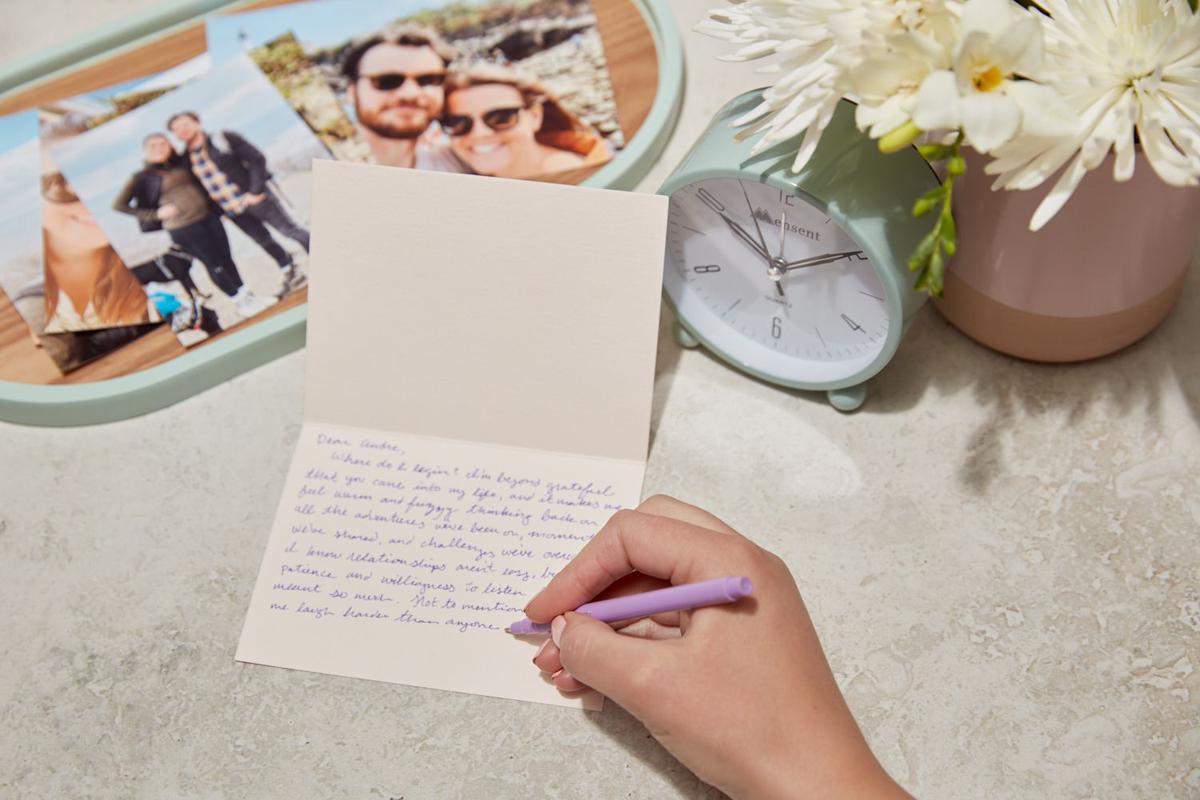 10
12
2
8
4
6
Mensent
QUARTZ
Dear Andre,
Where do I begin? I'm beyond grateful
that you came into my life, and it makes me
feel warm and fuzzy thinking back on
all the adventures we've been on, moments
we've shared, and challenges we've
I know relationships aren't easy,
patience and willingness to listen
meant so much. Not to mention
me laugh harder than anyone